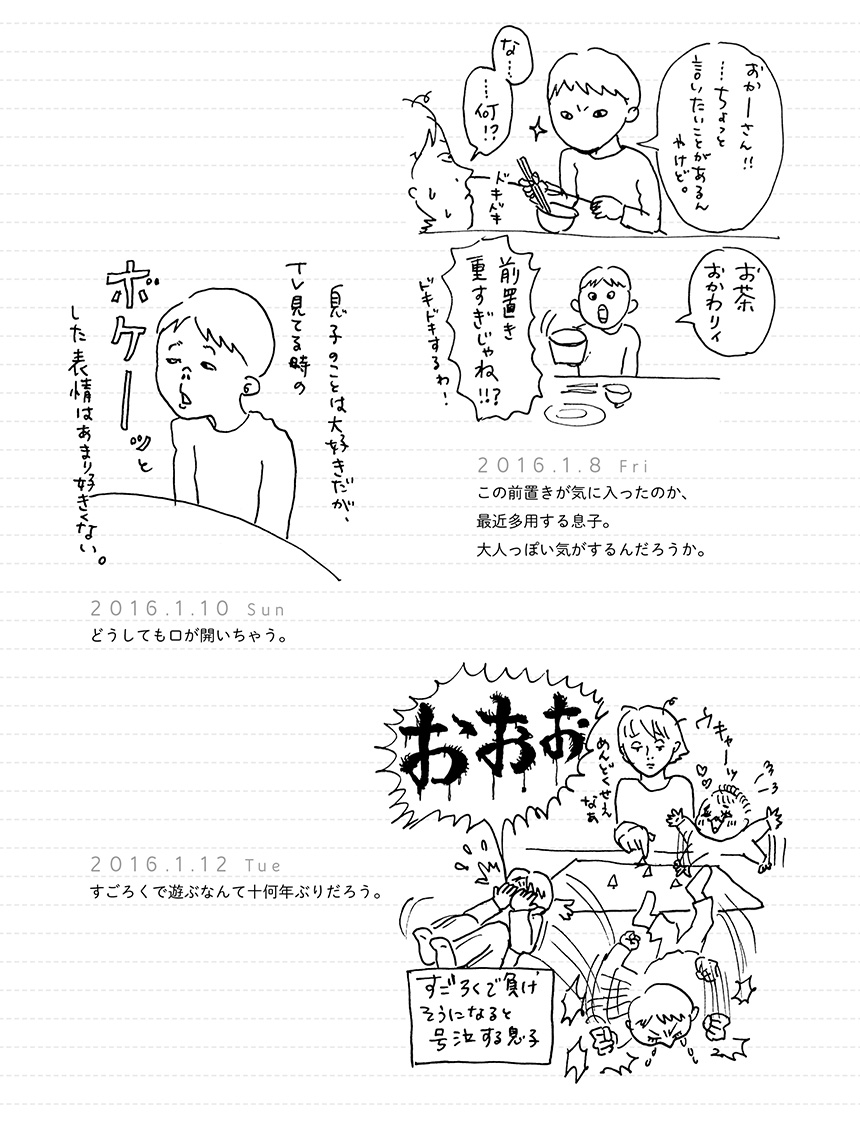 おかーさん!!
…ちょっと
言いたいことがあるん
やけど。
な…
…何!?
ドキドキ
お茶
おかわりィ
前置き
重すぎじゃね!!?
ドキドキするわ!
2016.1.8 Fri
この前置きが気に入ったのか、
最近多用する息子。
大人っぽい気がするんだろうか。
息子のことは大好きだが、
TV見てる時の
ボケーッと
した表情はあまり好きくない。
2016.1.10 Sun
どうしても口が開いちゃう。
おおお
めんどくせえ
なぁ
ウキャーッ
2016.1.12 Tue
すごろくで遊ぶなんて十何年ぶりだろう。
すごろくで負け
そうになると
号泣する息子